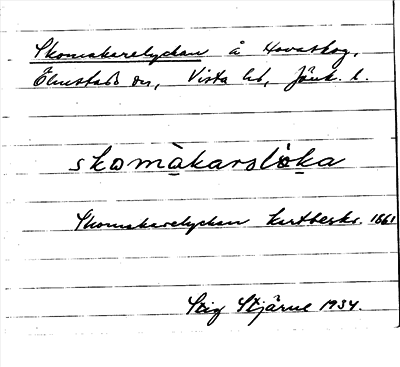 Skomakarelyckan å Hovaskog,
Ölmstads sn, Vista hd, Jönk. l.
skomàkarsloka
Skomakarelyckan kartbeskr. 1861
Stig Stjärne 1934.